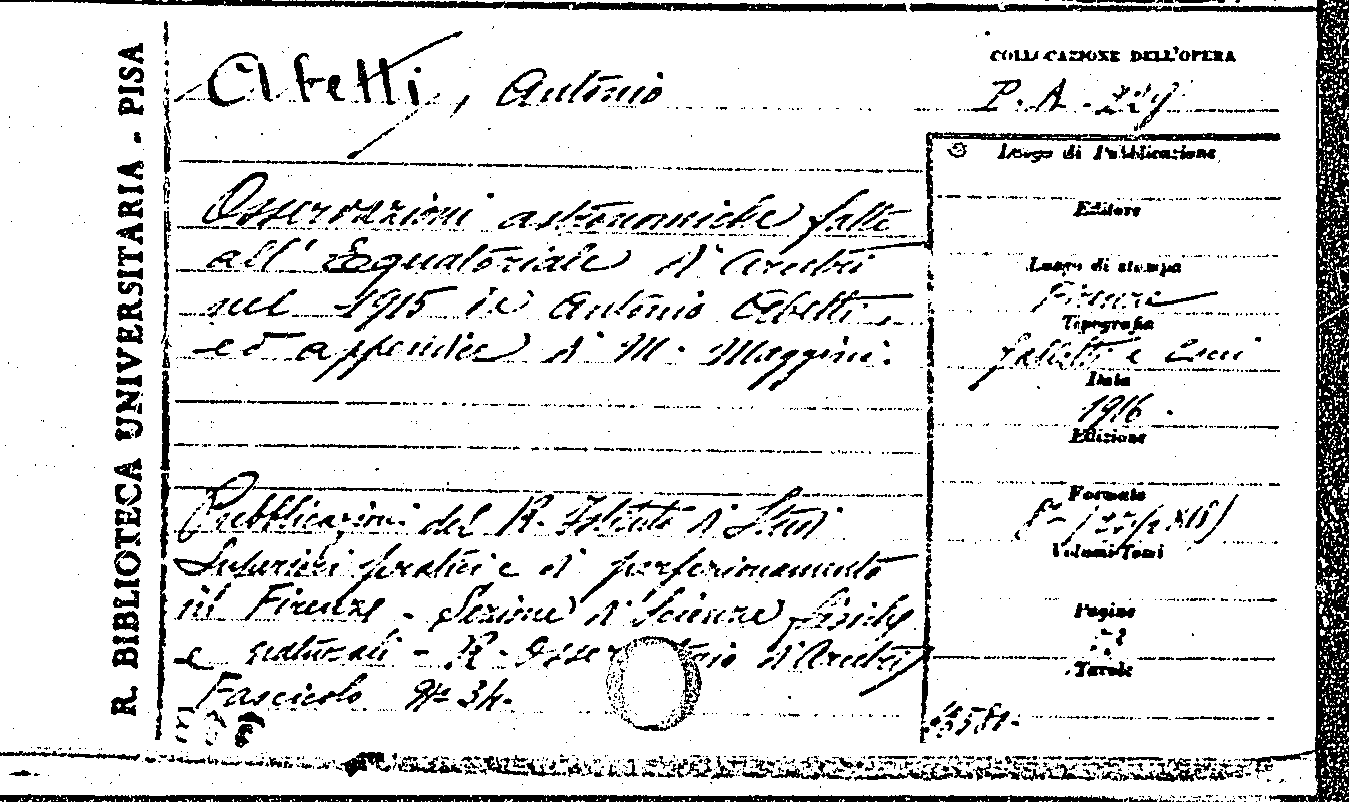 R. BIBLIOTECA UNIVERSITARIA - PISA
Abetti, Antonio
Osservazioni astronomiche fatte
all' Equatoriale di Arcetri
nel 1915 da Antonio Abetti,
ed appendice di M. Maggini.
Pubblicazioni del R. Istituto di Studi
Superiori pratici e di perfezionamento
in Firenze - Sezione di Scienze fisiche
e naturali - R. Osservatorio di Arcetri
Fascicolo N° 34.
COLLOCAZIONE DELL'OPERA
P. A.
Luogo di Pubblicazione
Editore
Luogo di stampa
Firenze
Tipografia
Galletti e Cocci
Data
1916.
Edizione
Formato
8°
Volumi-Tomi
Pagine
Tavole